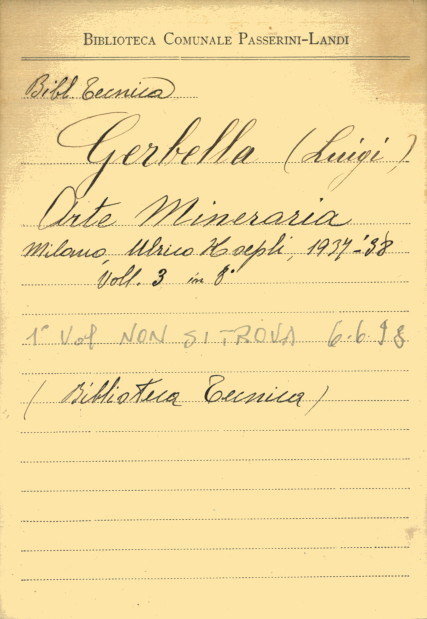 BIBLIOTECA COMUNALE PASSERINI-LANDI
Bibl. Tecnica
Gerbella (Luigi)
Arte Mineraria
Milano, Ulrico Hoepli, 1937-'38
Voll. 3 in 8°
1° Vol NON SI TROVA 6.6.98
(Biblioteca Tecnica)